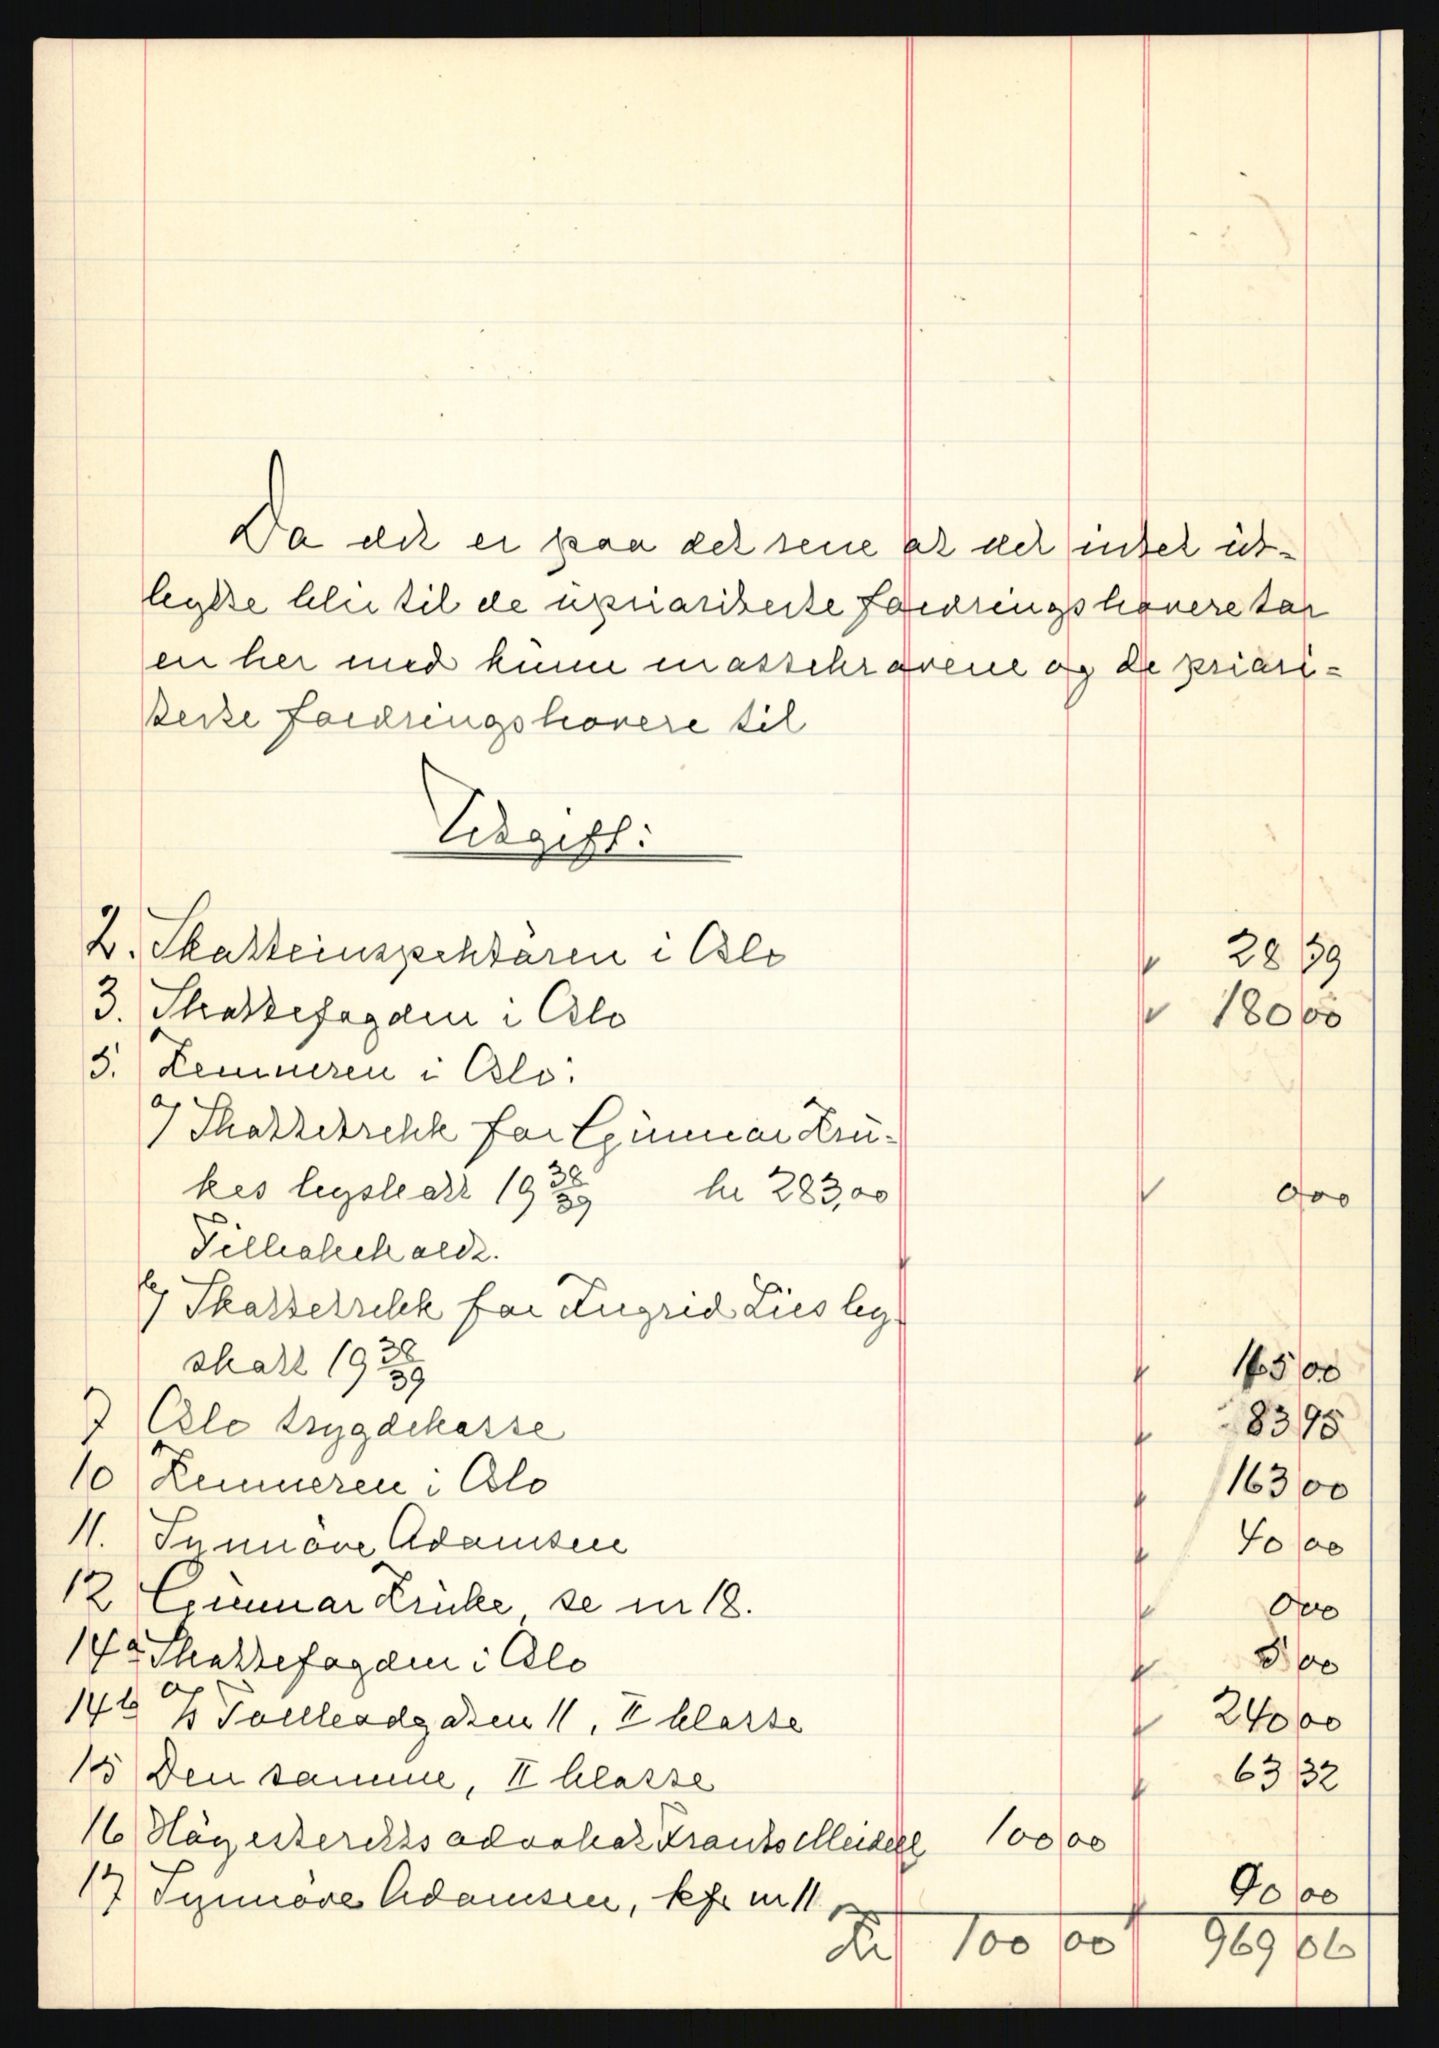 Da det er paa det rene at det intet ut-
bytte blir til de uprioriterte fordringshavere tar
en her med kunn massekravene og de priori=
terte fordringshavere til
Utgift:
2. Skatteinspektøren i Oslo 28 79
3. Skattefogden i Oslo 180 00
5. Kemneren i Oslo:
a/ Skattetrekk for Gunnar Kru-
kes byskatt 19 38/39 kr 283,00 0 00
Tilbakekaldt.
b/ Skattetrekk for Ingrid Lies by-
skatt 19 38/39 165 00
7 Oslo trygdekasse 83 95
10 Kemneren i Oslo 163 00
11. Synnöve Adamsen 40 00
12 Gunnar Kruke, se nr 18. 0 00
14a Skattefogden i Oslo 5 00
14b A/S Tollbodgaten 11, II klasse 240 00
15 Den samme, II klasse 63 32
16 Höyesterettsadvokat Frants Meidell 100 00
17 Synnöve Adamsen, kfr nr 11 00
Kr 100 00 969 06